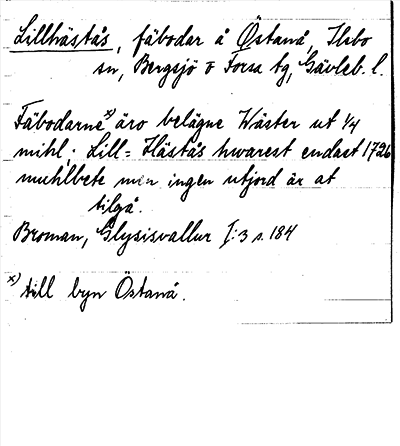 Lillhästås, fäbodar å Östanå, Ilsbo
sn, Bergsjö o Forsa tg, Gävleb. l.
Fäbodarne x) äro belägne Wäster ut 1/4
mihl; Lill-Hästås hwarest endast 1726
muhlbete men ingen utjord är at
tilgå.
Broman, Glysisvallur I:3 s. 184
x) till byn Östanå.